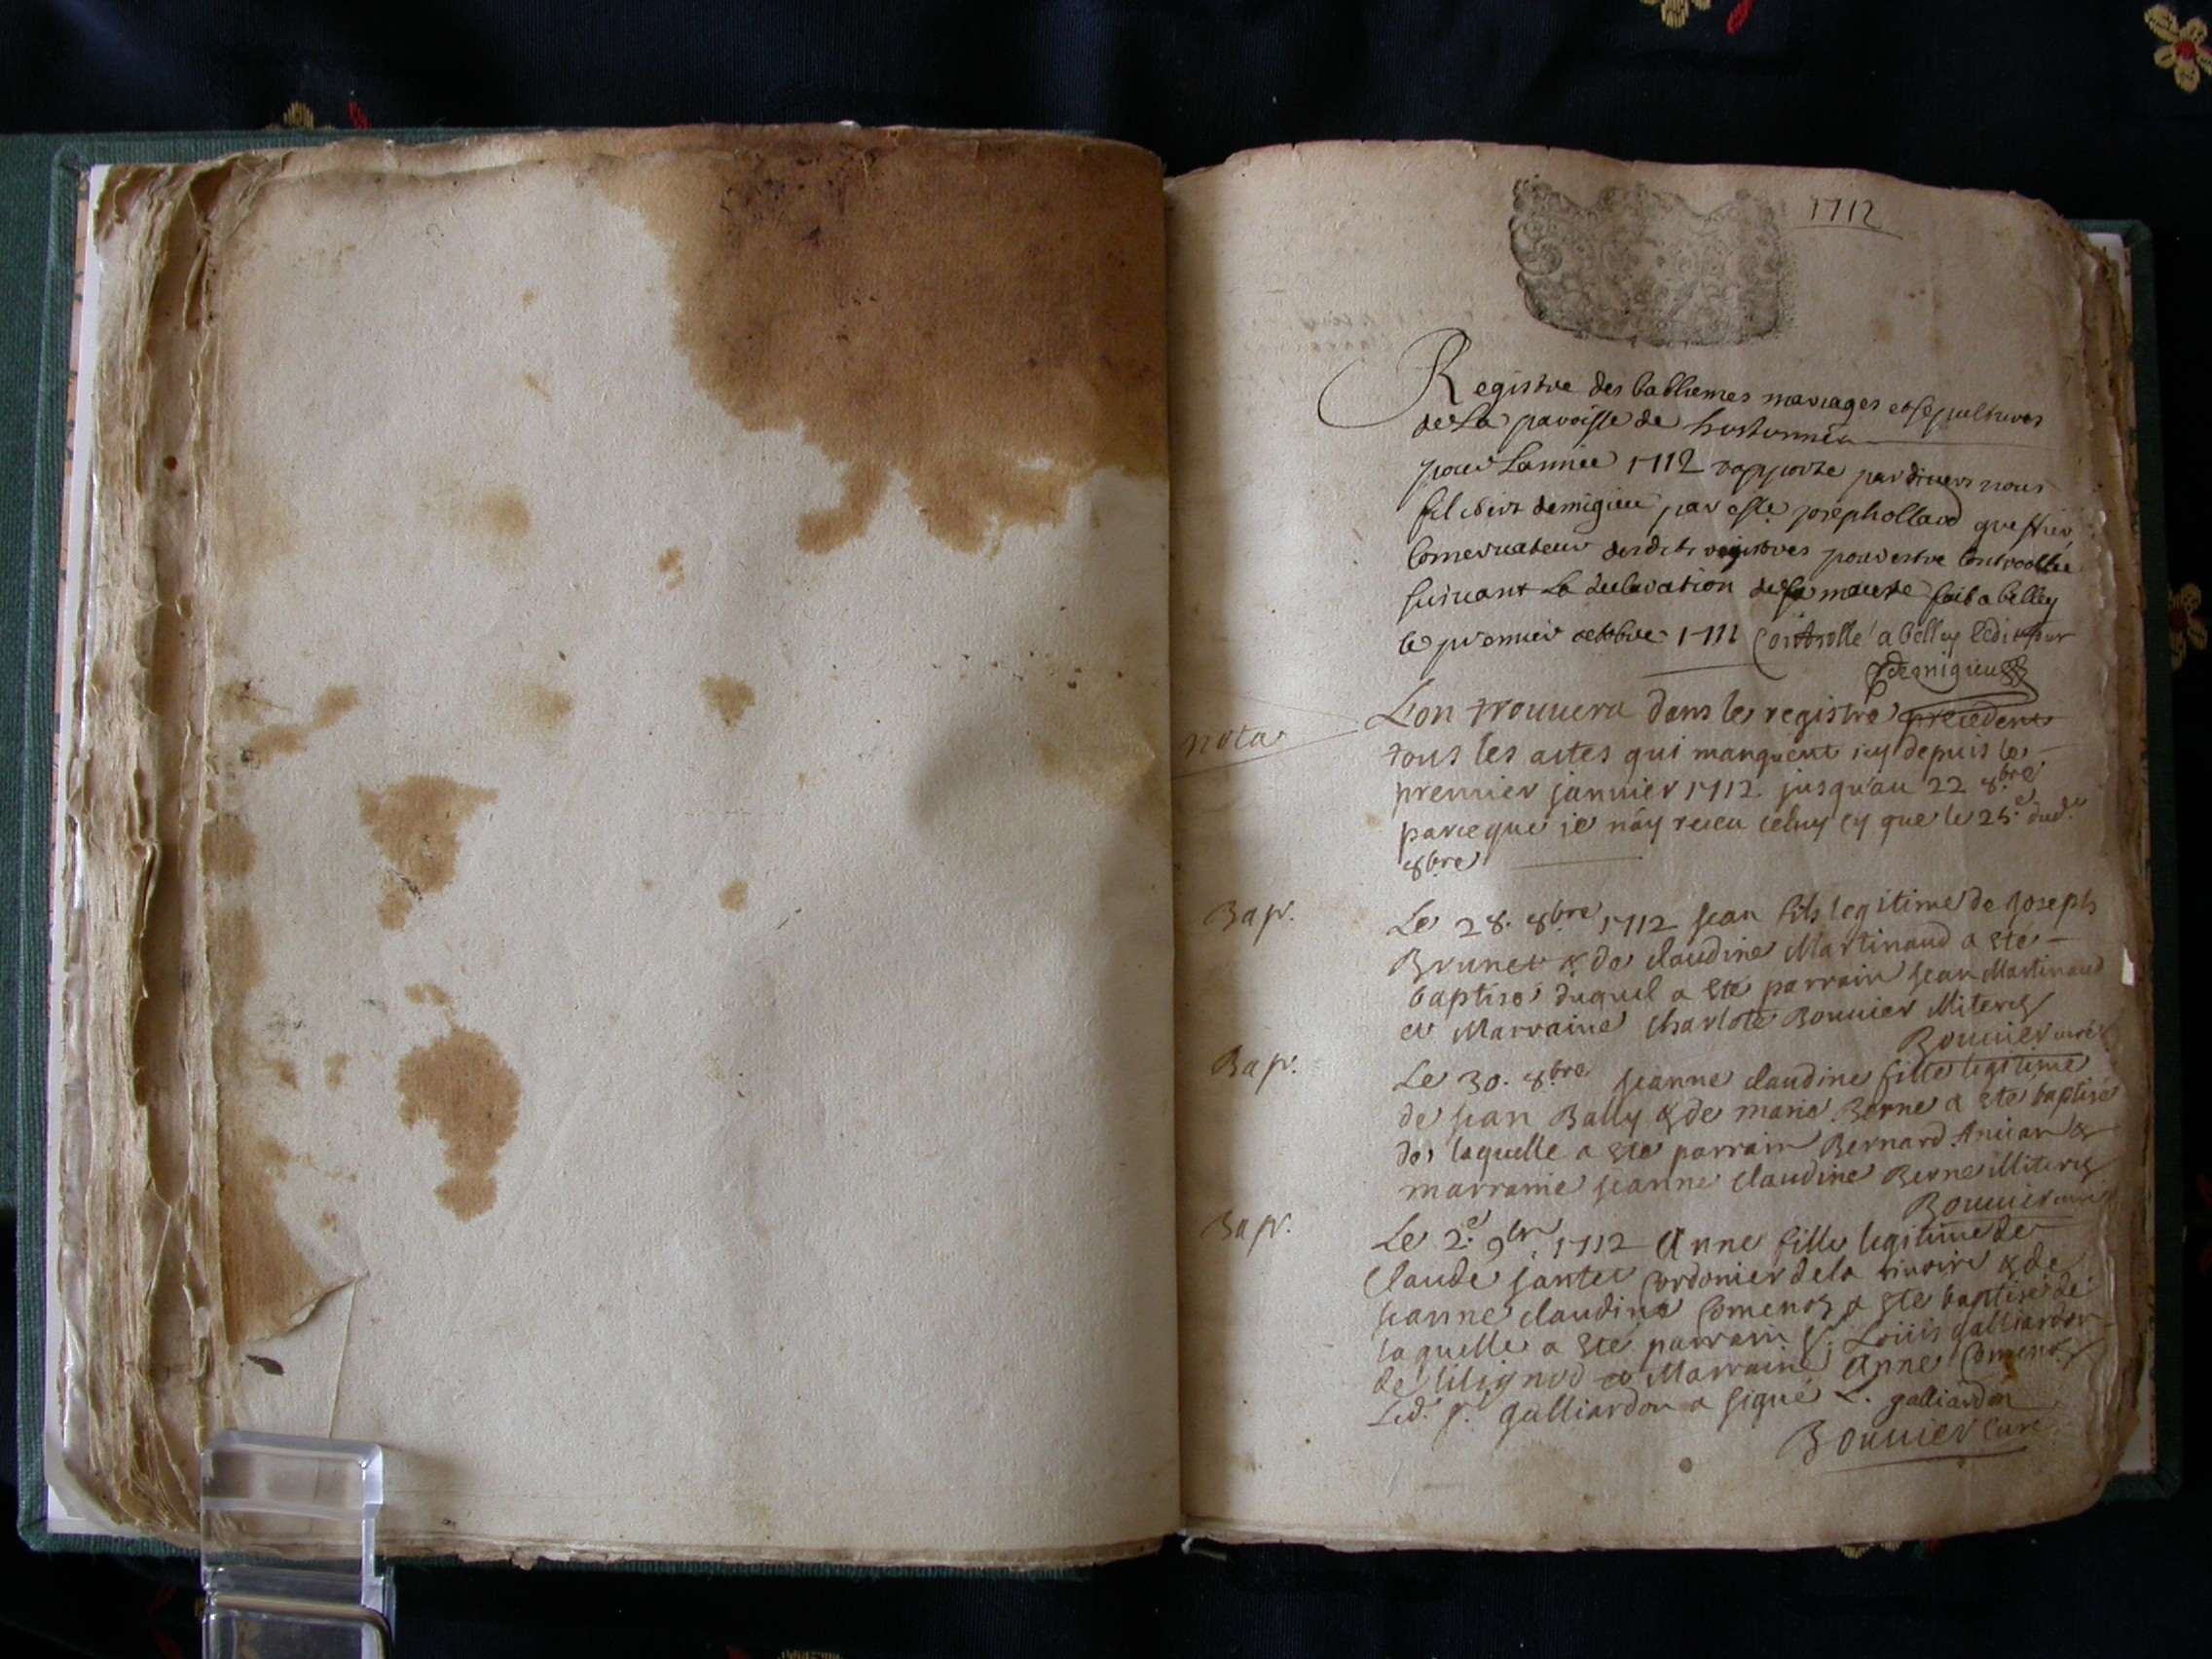 1712
Registre des bathemes mariages et sepultures
de La paroisse de hostonne
pour Lannee 1712 par divers nous
demigieu par Me joseph ollard greffier
Conservateur desdits registres pour estre Controolle
suivant La declaration de sa maieste fait a belley
le premier octobre 1711 Controlle a belley ledit jour
Demigieu
nota
Lon trouvera dans le registre precedent
tous les actes qui manquent icy depuis le
premier janvier 1712 jusqu'au 22 8bre
parceque je n'ay receu celuy cy que le 25e dud.
8bre
Bap.
Le 28. 8bre 1712 jean fils legitime de joseph
Brunet & de claudine Martinaud a ete
baptisé duquel a ete parrain jean Martinaud
et Marraine charlote Bouuier illiteres
Bouuier curé
Bap.
Le 30. 8bre jeanne claudine fille legitime
de jean Bally & de marie Berne a eté baptisé
de laquelle a eté parrain Bernard Ancian &
marraine jeanne claudine Berne illiteres
Bouuier curé
Bap.
Le 2e. 9br 1712 Anne fille legitime de
Claude jantet Cordonier de la riuoire & de
jeanne claudine Comenos a eté baptisé de
laquelle a eté parrain Sr. Loüis galliardon
de lilignod et Marraine Anne Comenos
Led. Sr. galliardon a signé L. galliardon
Bouuier Curé